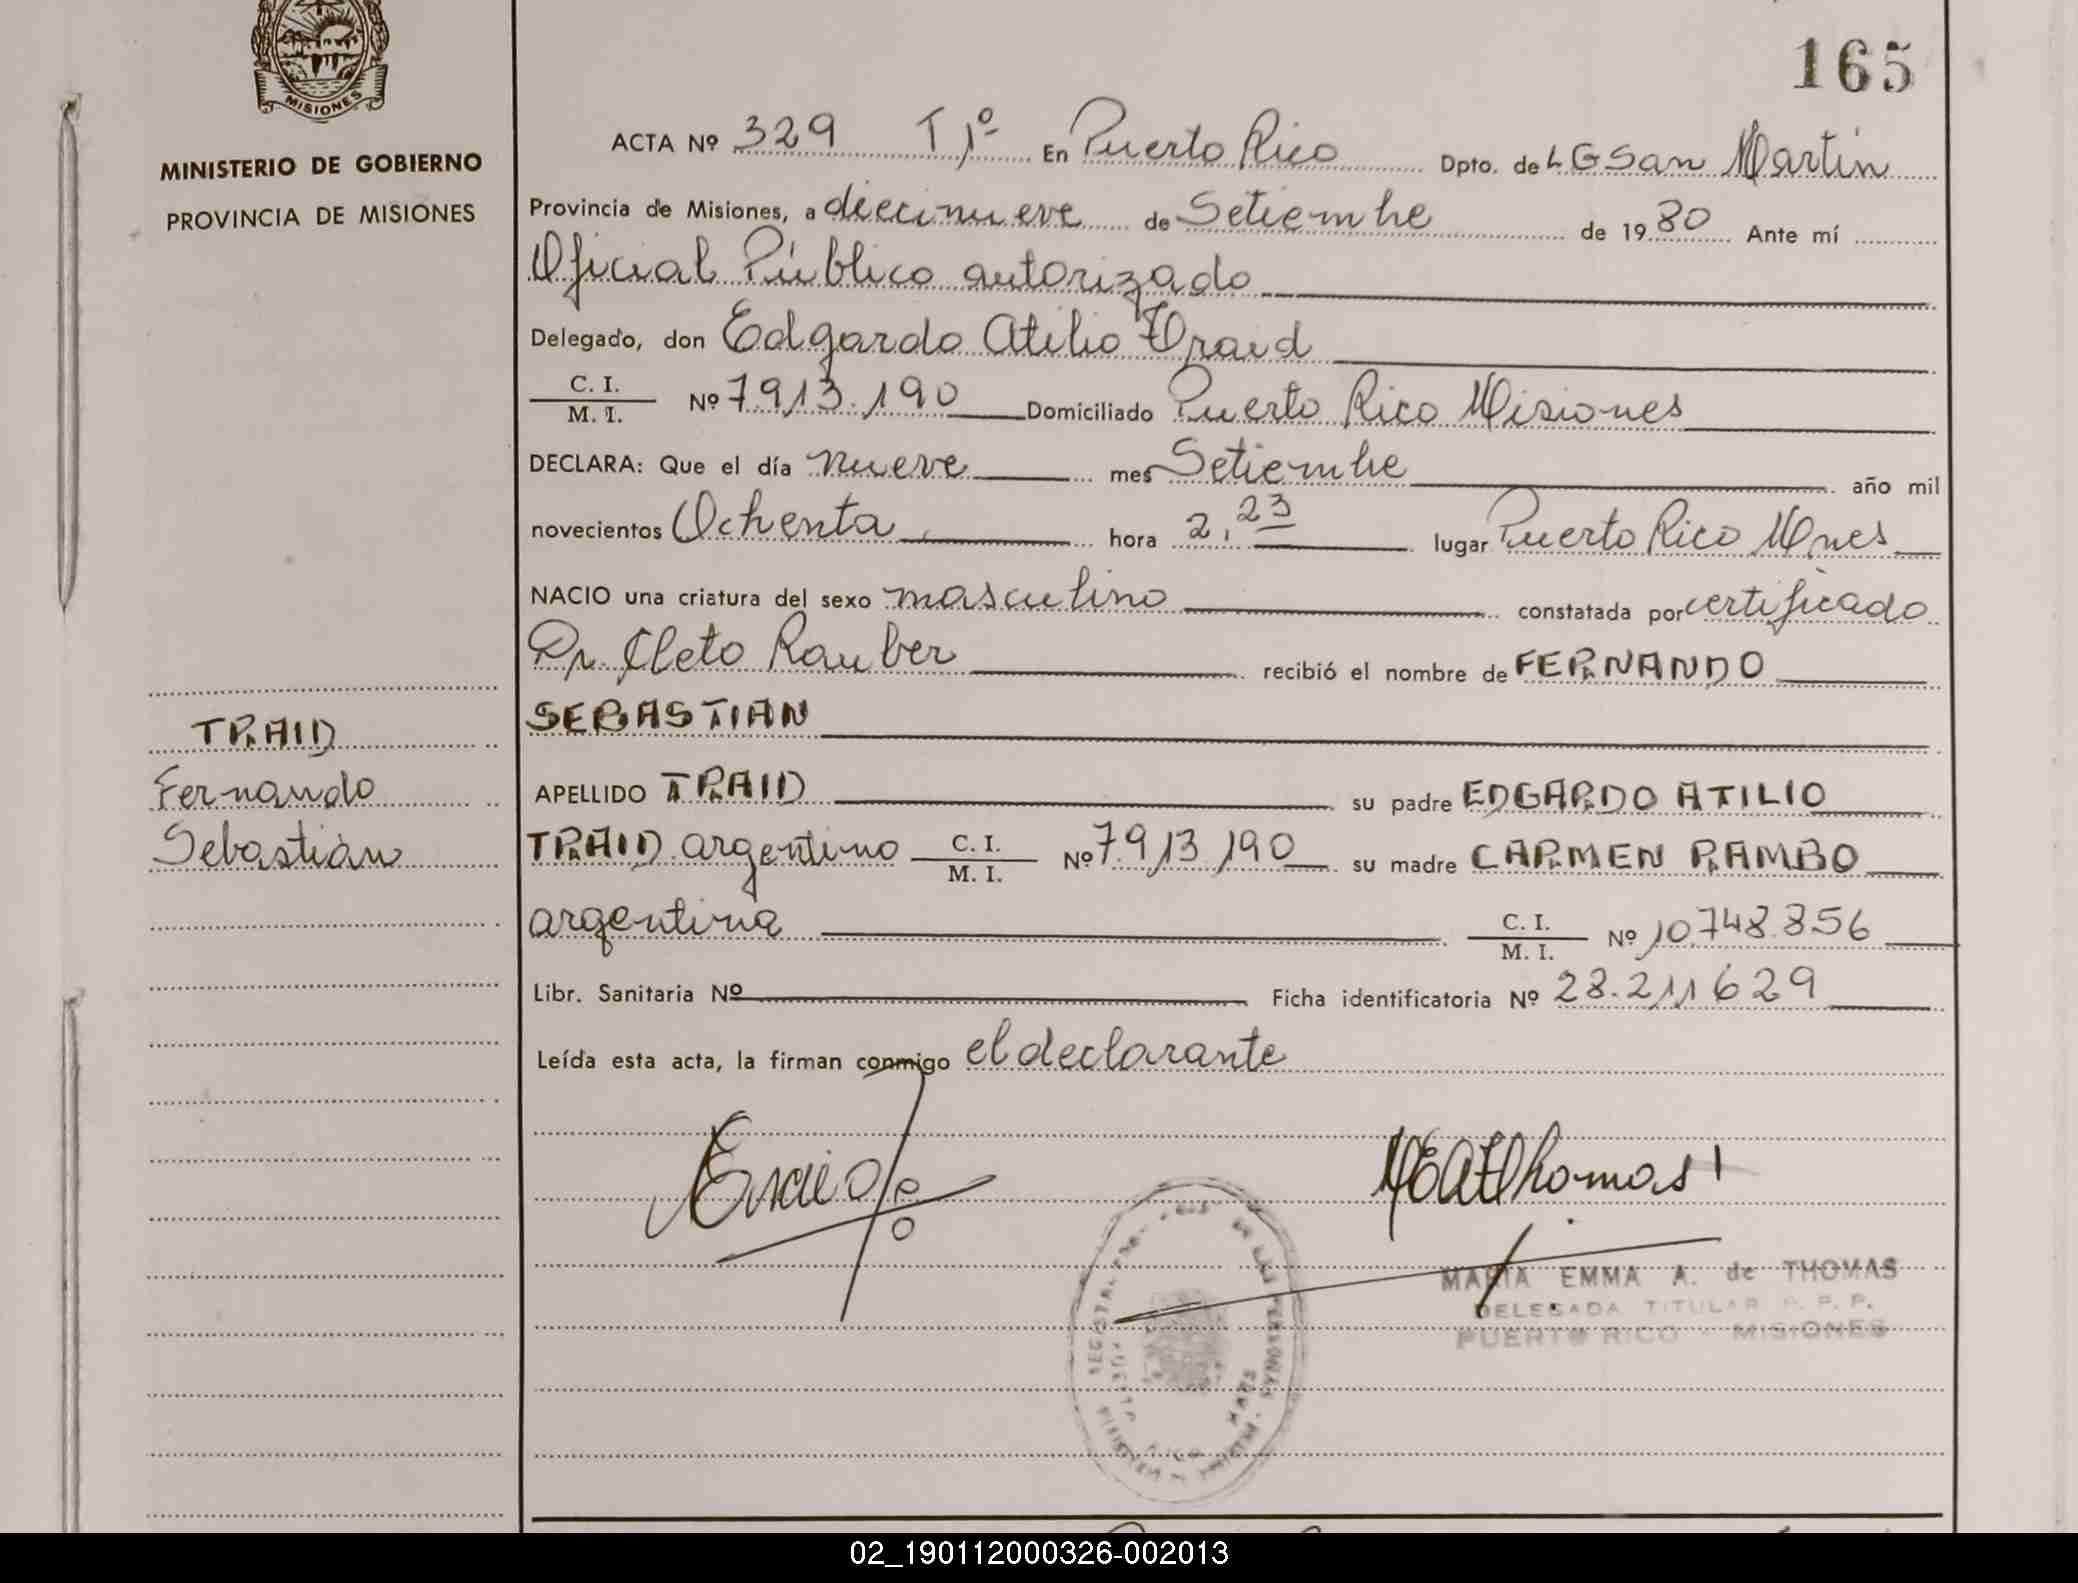 MISIONES
MINISTERIO DE GOBIERNO
PROVINCIA DE MISIONES
165
ACTA Nº 329 T 1º En Puerto Rico Dpto. de L G San Martin
Provincia de Misiones, a diecinueve de Setiembre de 1980 Ante mí
Oficial Público autorizado
Delegado, don Edgardo Atilio Traid
C. I.
M. I.
Nº 7.913.190 Domiciliado Puerto Rico Misiones
DECLARA: Que el día nueve mes Setiembre año mil
novecientos Ochenta hora 2,23 lugar Puerto Rico Mnes
NACIO una criatura del sexo masculino constatada por certificado
Dr. Cleto Rauber recibió el nombre de FERNANDO
SEBASTIAN
TRAID
Fernando
Sebastián
APELLIDO TRAID su padre EDGARDO ATILIO
TRAID argentino C. I. M. I. Nº 7.913.190 su madre CARMEN RAMBO
argentina C. I. M. I. Nº 10.748.856
Libr. Sanitaria Nº Ficha identificatoria Nº 28.211629
Leída esta acta, la firman conmigo el declarante
MEAThomas
MARIA EMMA A. de THOMAS
DELEGADA TITULAR R. P. P.
PUERTO RICO - MISIONES
02_190112000326-002013